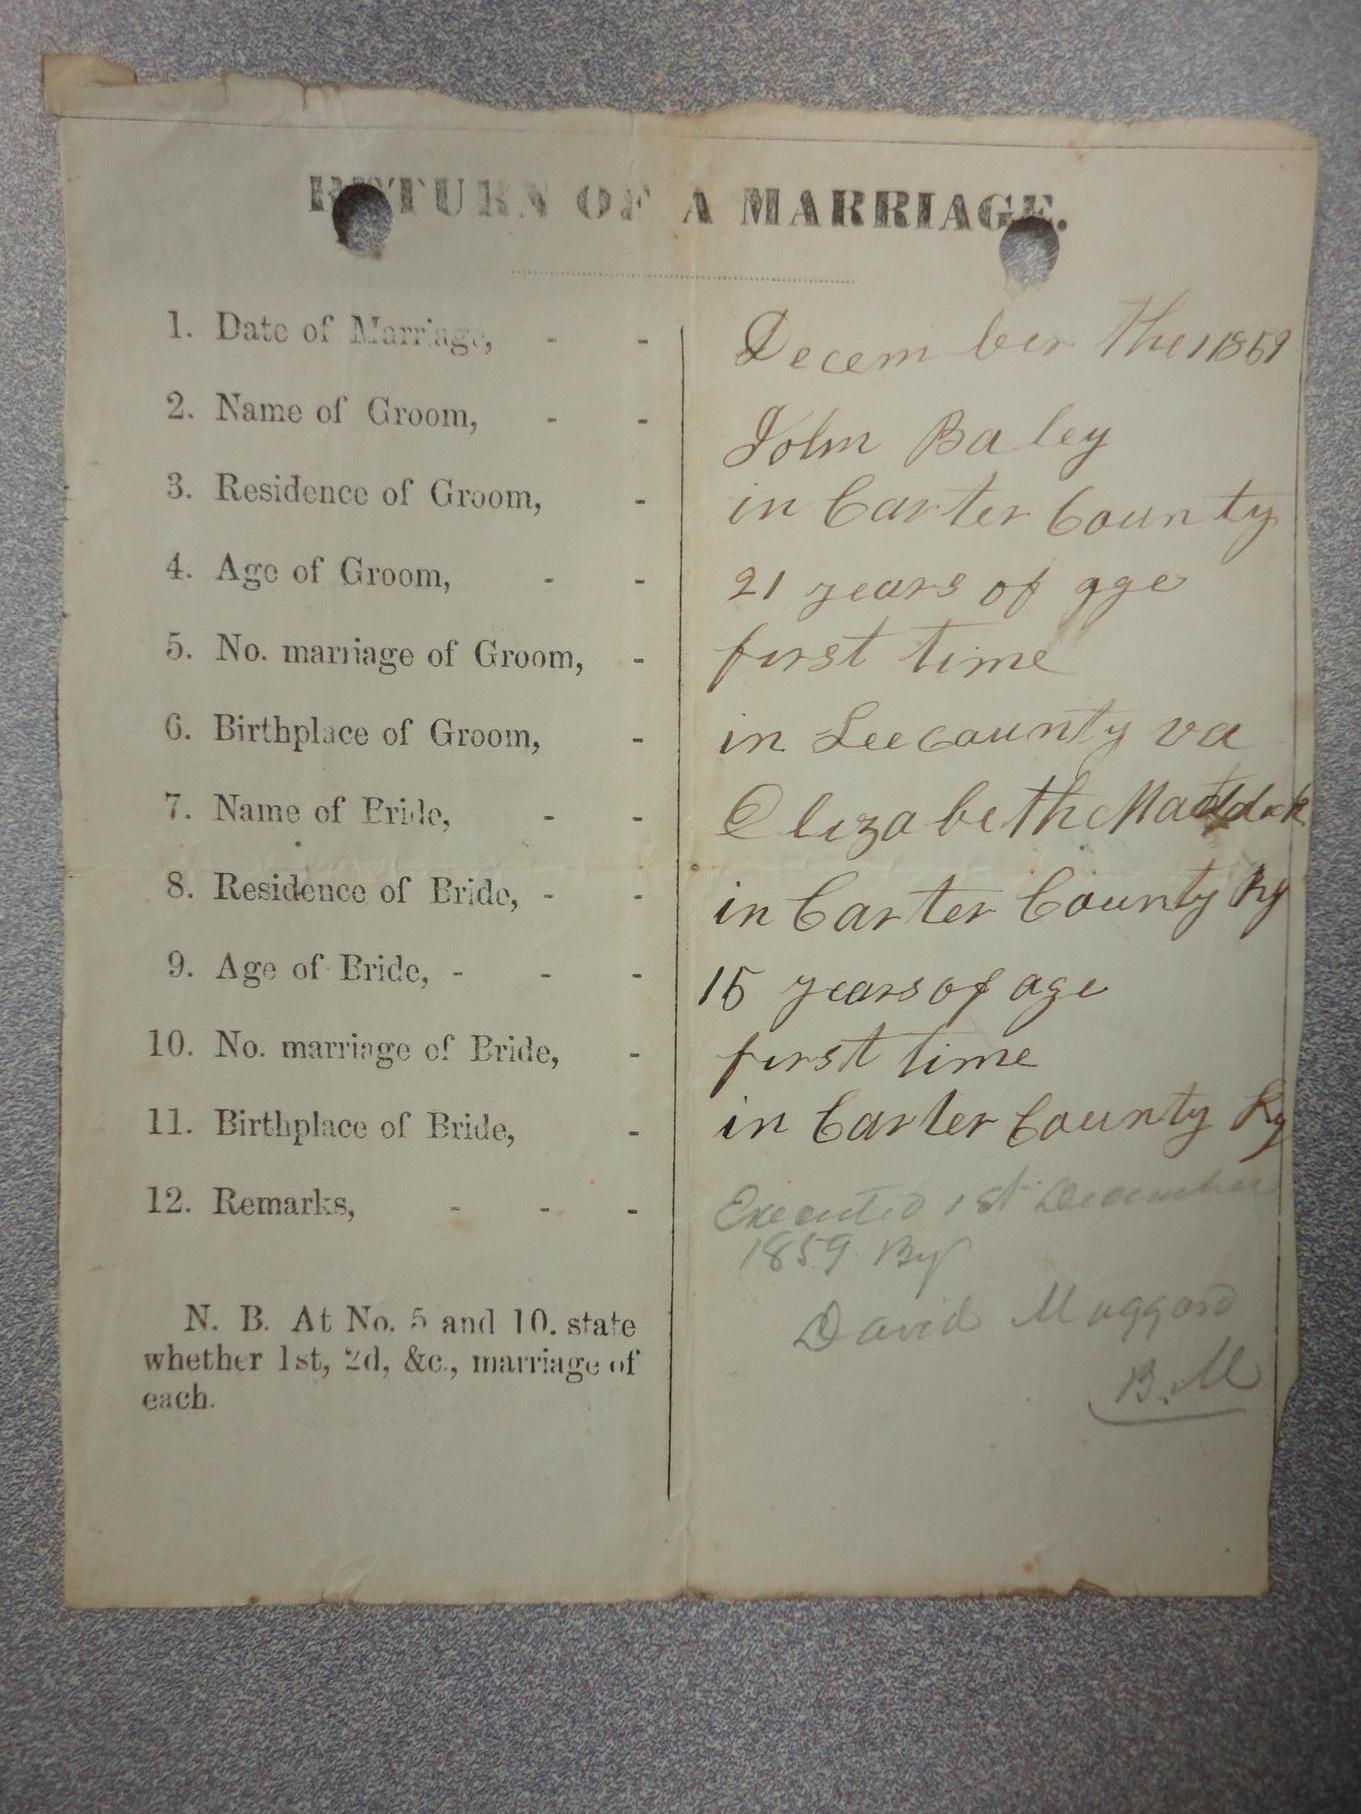 RETURN OF A MARRIAGE.
1. Date of Marriage, - - December the 1 1859
2. Name of Groom, - - John Baley
3. Residence of Groom, - in Carter County
4. Age of Groom, - - 21 years of age
5. No. marriage of Groom, - first time
6. Birthplace of Groom, - in Lee county va
7. Name of Bride, - - Elizabeth Maddok
8. Residence of Bride, - - in Carter County Ky
9. Age of Bride, - - - 15 years of age
10. No. marriage of Bride, - first time
11. Birthplace of Bride, - in Carter County Ky
12. Remarks, - - - Executed 1st December
1859 By
David Muggard
B. M
N. B. At No. 5 and 10. state
whether 1st, 2d, &c., marriage of
each.